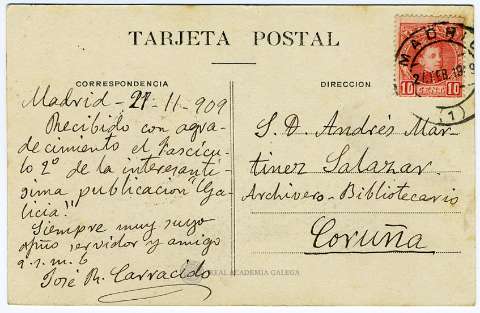 TARJETA POSTAL
CORRESPONDENCIA
Madrid - 21-11-909
Recibido con agra-
decimiento el fascícu-
lo 2º de la interesantí-
sima publicación "Ga-
licia".
Siempre muy suyo
afmo servidor y amigo
q. s. m. b
José R. Carracido
DIRECCION
S. D. Andrés Mar-
tinez Salazar.
Archivero-Bibliotecario
Coruña
MADRID
10 10
REAL ACADEMIA GALEGA